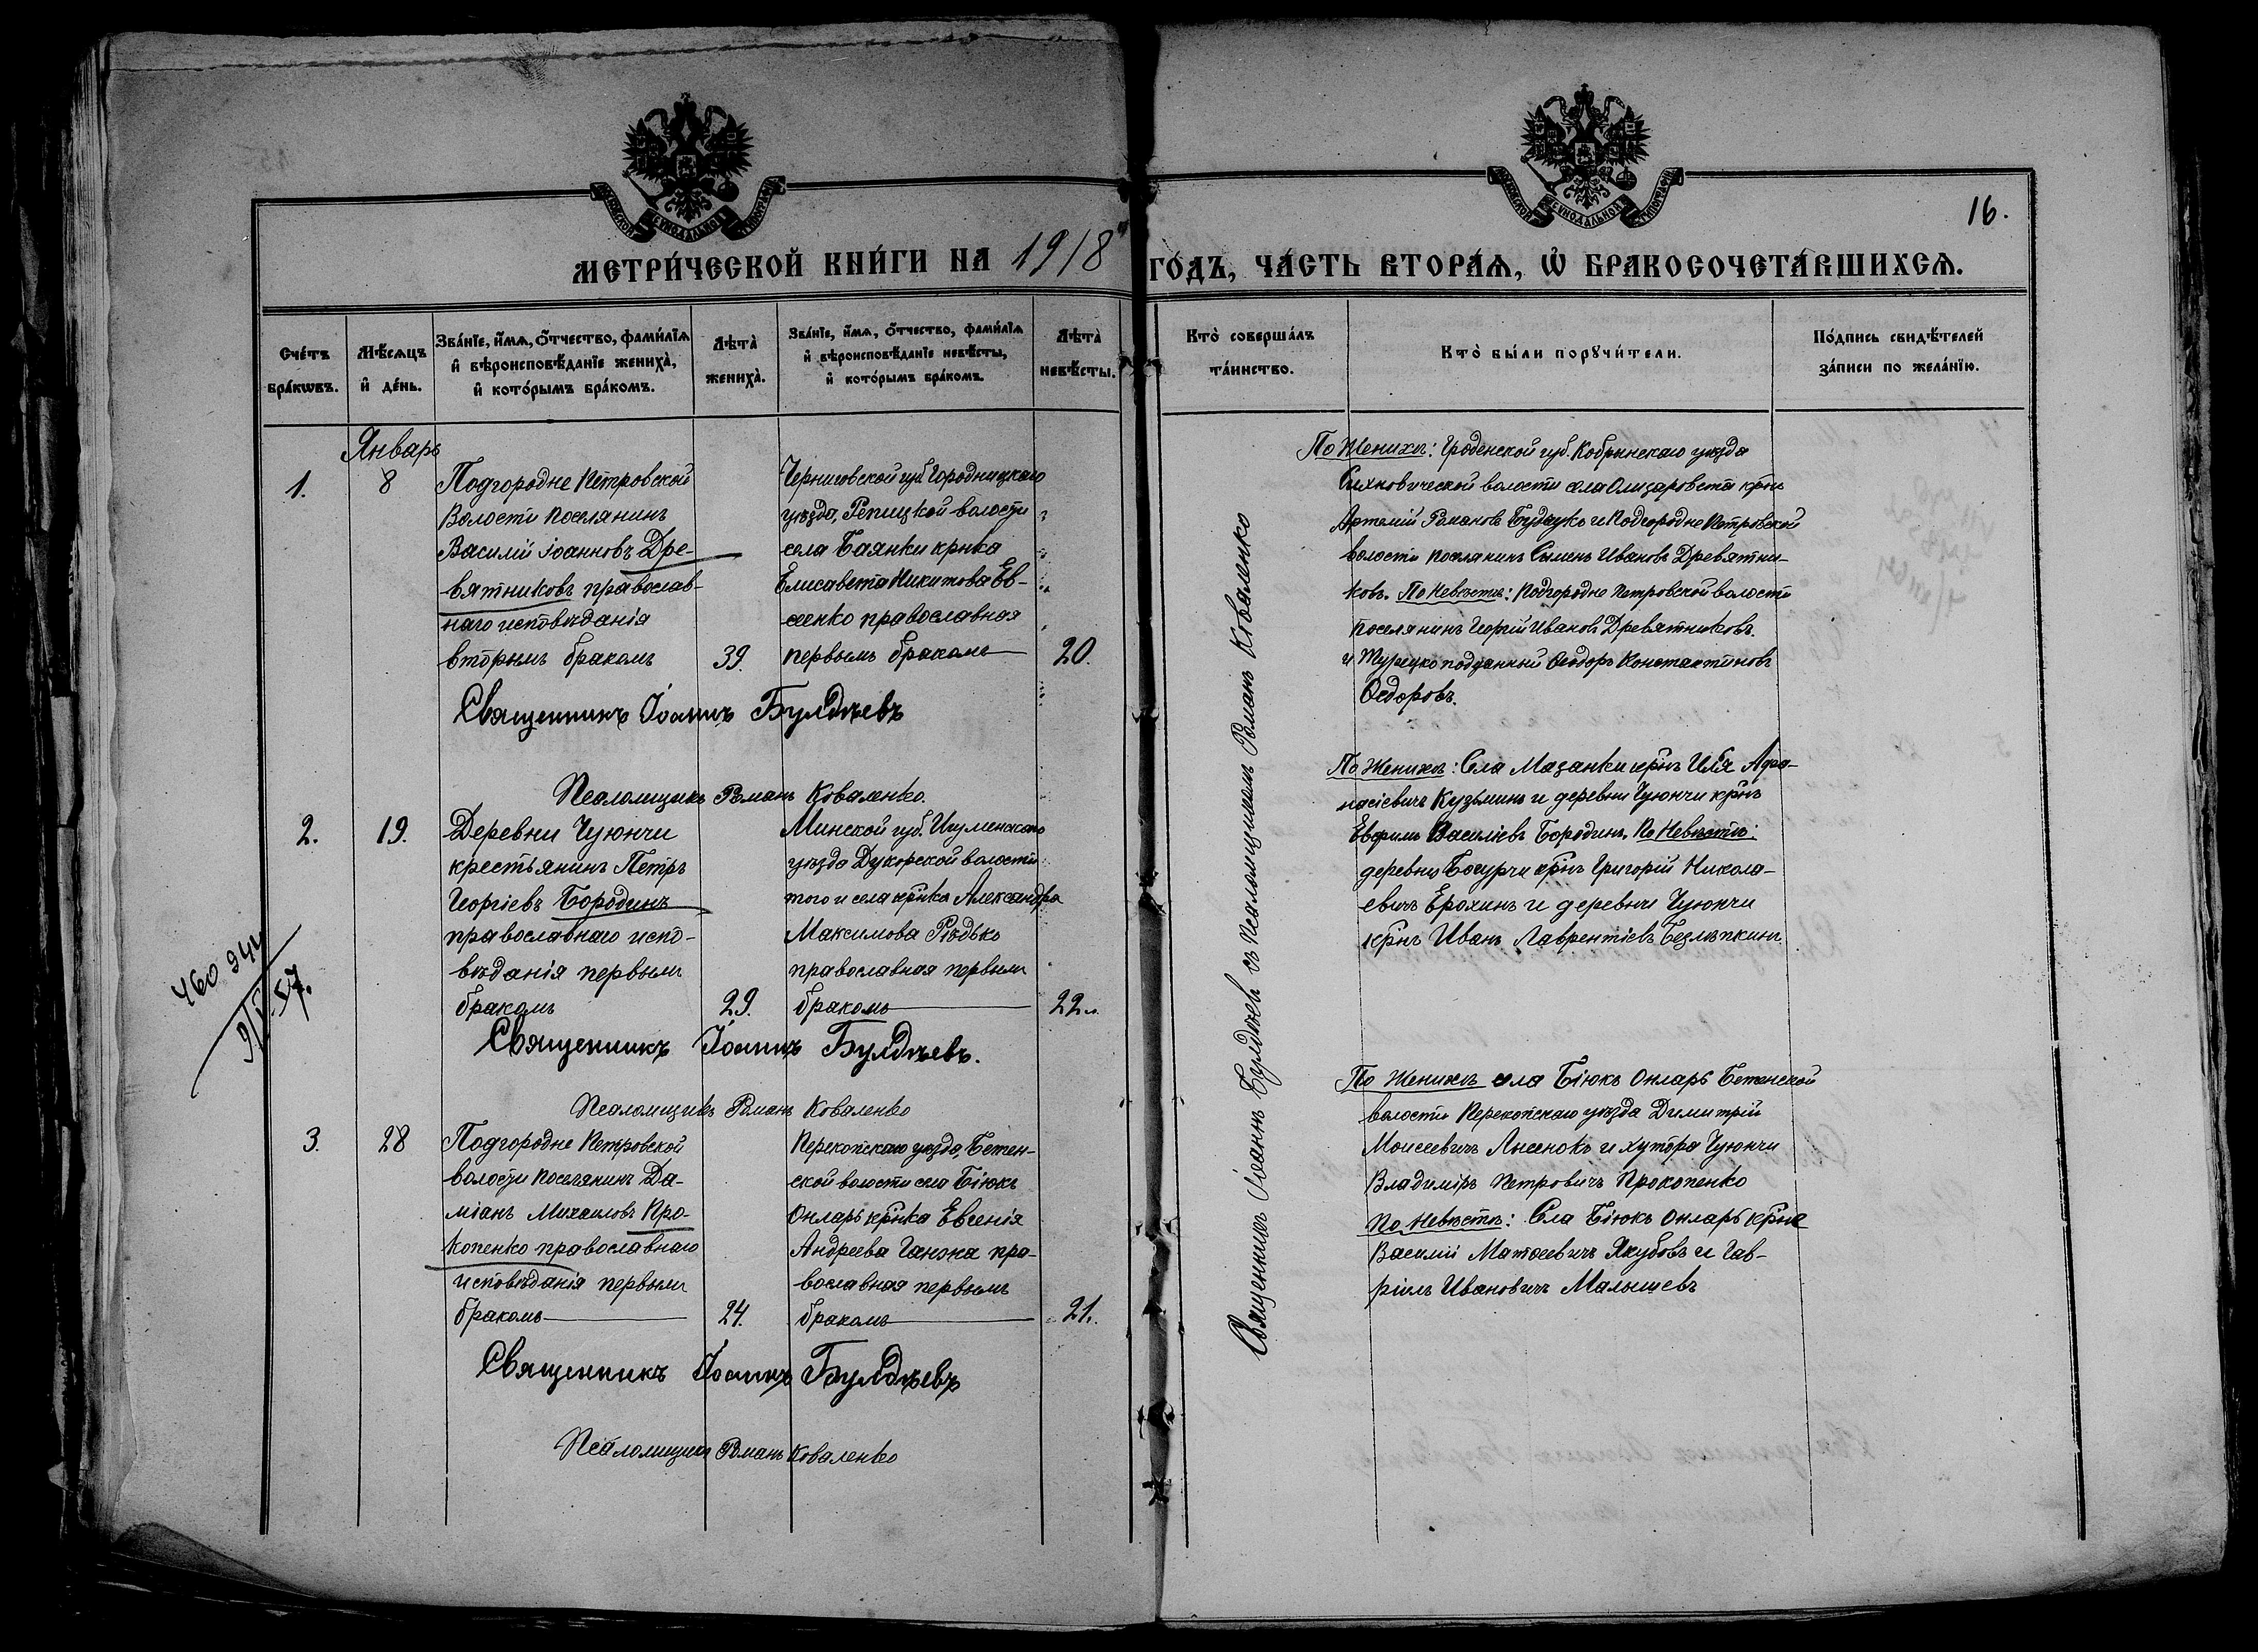 16.
МЕТРИ́ЧЕСКОЙ КНИ́ГИ НА 1918 ГО́ДЪ, ЧА́СТЬ ВТОРА́Ѧ, Ѡ҆ БРАКОСОЧЕТА́ВШИХСѦ.
Сче́тъ бра́кѡвъ.
Мѣ́сѧцъ и҆ де́нь.
Зва́нїе, и҆́мѧ, ѻ҆́тчество, фами́лїѧ и҆ вѣроисповѣ́данїе жениха̀, и҆ кото́рымъ бра́комъ.
Лѣта̀ жениха̀.
Зва́нїе, и҆́мѧ, ѻ҆́тчество, фами́лїѧ и҆ вѣроисповѣ́данїе невѣ́сты, и҆ кото́рымъ бра́комъ.
Лѣта̀ невѣ́сты.
Кто̀ соверша́лъ та́инство.
Кто̀ бы́ли порꙋчи́тели.
По́дпись свидѣ́телей за́писи по жела́нїю.
Январь
1.
8
Подгородне Петровской
Волости поселянинъ
Василій Іоанновъ Дре-
вятниковъ православ-
наго исповѣданія
вторымъ бракомъ
39.
Черниговской губ. Городницкаго
уѣзда, Репицкой волости
села Баянки крнка
Елисавета Никитова Ев-
сеенко православная
первымъ бракомъ
20.
Священникъ Іоаннъ Булдѣевъ
Псаломщикъ Романъ Коваленко.
По Женихѣ: Гроденской губ. Кобринскаго уѣзда
волости села крнъ
Артемій Романовъ и Подгородне Петровской
волости поселянинъ Семенъ Ивановъ Древятни-
ковъ. По Невѣстѣ: Подгородне Петровской волости
поселянинъ Георгій Ивановъ Древятниковъ.
и Турецко подданный Ѳеодоръ Константиновъ
Ѳедоровъ.
2.
19.
Деревни Чуюнчи
крестьянинъ Петръ
Георгіевъ Бородинъ
православнаго испо-
вѣданія первымъ
бракомъ
29.
Минской губ. Игуменскаго
уѣзда Дукорской волости
того и села крнка Александра
Максимова Рѣдько
православная первымъ
бракомъ
22
Священникъ Іоаннъ Булдѣевъ.
Псаломщикъ Романъ Коваленко
По Женихѣ: Села Мазанки крнъ Илья Афа-
насіевичъ Кузьминъ и деревни Чуюнчи крнъ
Евфимъ Василіевъ Бородинъ. По Невѣстѣ:
деревни Бочурчи крнъ Григорій Никола-
евичъ Ерохинъ и деревни Чуюнчи
крнъ Иванъ Лаврентіевъ Безлѣпкинъ.
460 944
9/V.57.
3.
28
Подгородне Петровской
волости поселянинъ Да-
міанъ Михаиловъ Про-
копенко православнаго
исповѣданія первымъ
бракомъ
24.
Перекопскаго уѣзда, Бетен-
ской волости села Біюкъ
Онларъ крнка Евгенія
Андреева Ганжа пра-
вославная первымъ
бракомъ
21.
Священникъ Іоаннъ Булдѣевъ
Псаломщикъ Романъ Коваленко
По Женихѣ села Біюкъ Онларъ Бетенской
волости Перекопскаго уѣзда Димитрій
Моисеевичъ Лысенокъ и хутора Чуюнчи
Владиміръ Петровичъ Прокопенко
По Невѣстѣ: Села Біюкъ Онларъ крне
Василій Матѳеевичъ Якубовъ и Гав-
ріилъ Ивановичъ Малышевъ
Священникъ Іоаннъ Булдѣевъ съ Псаломщикомъ Романъ Коваленко